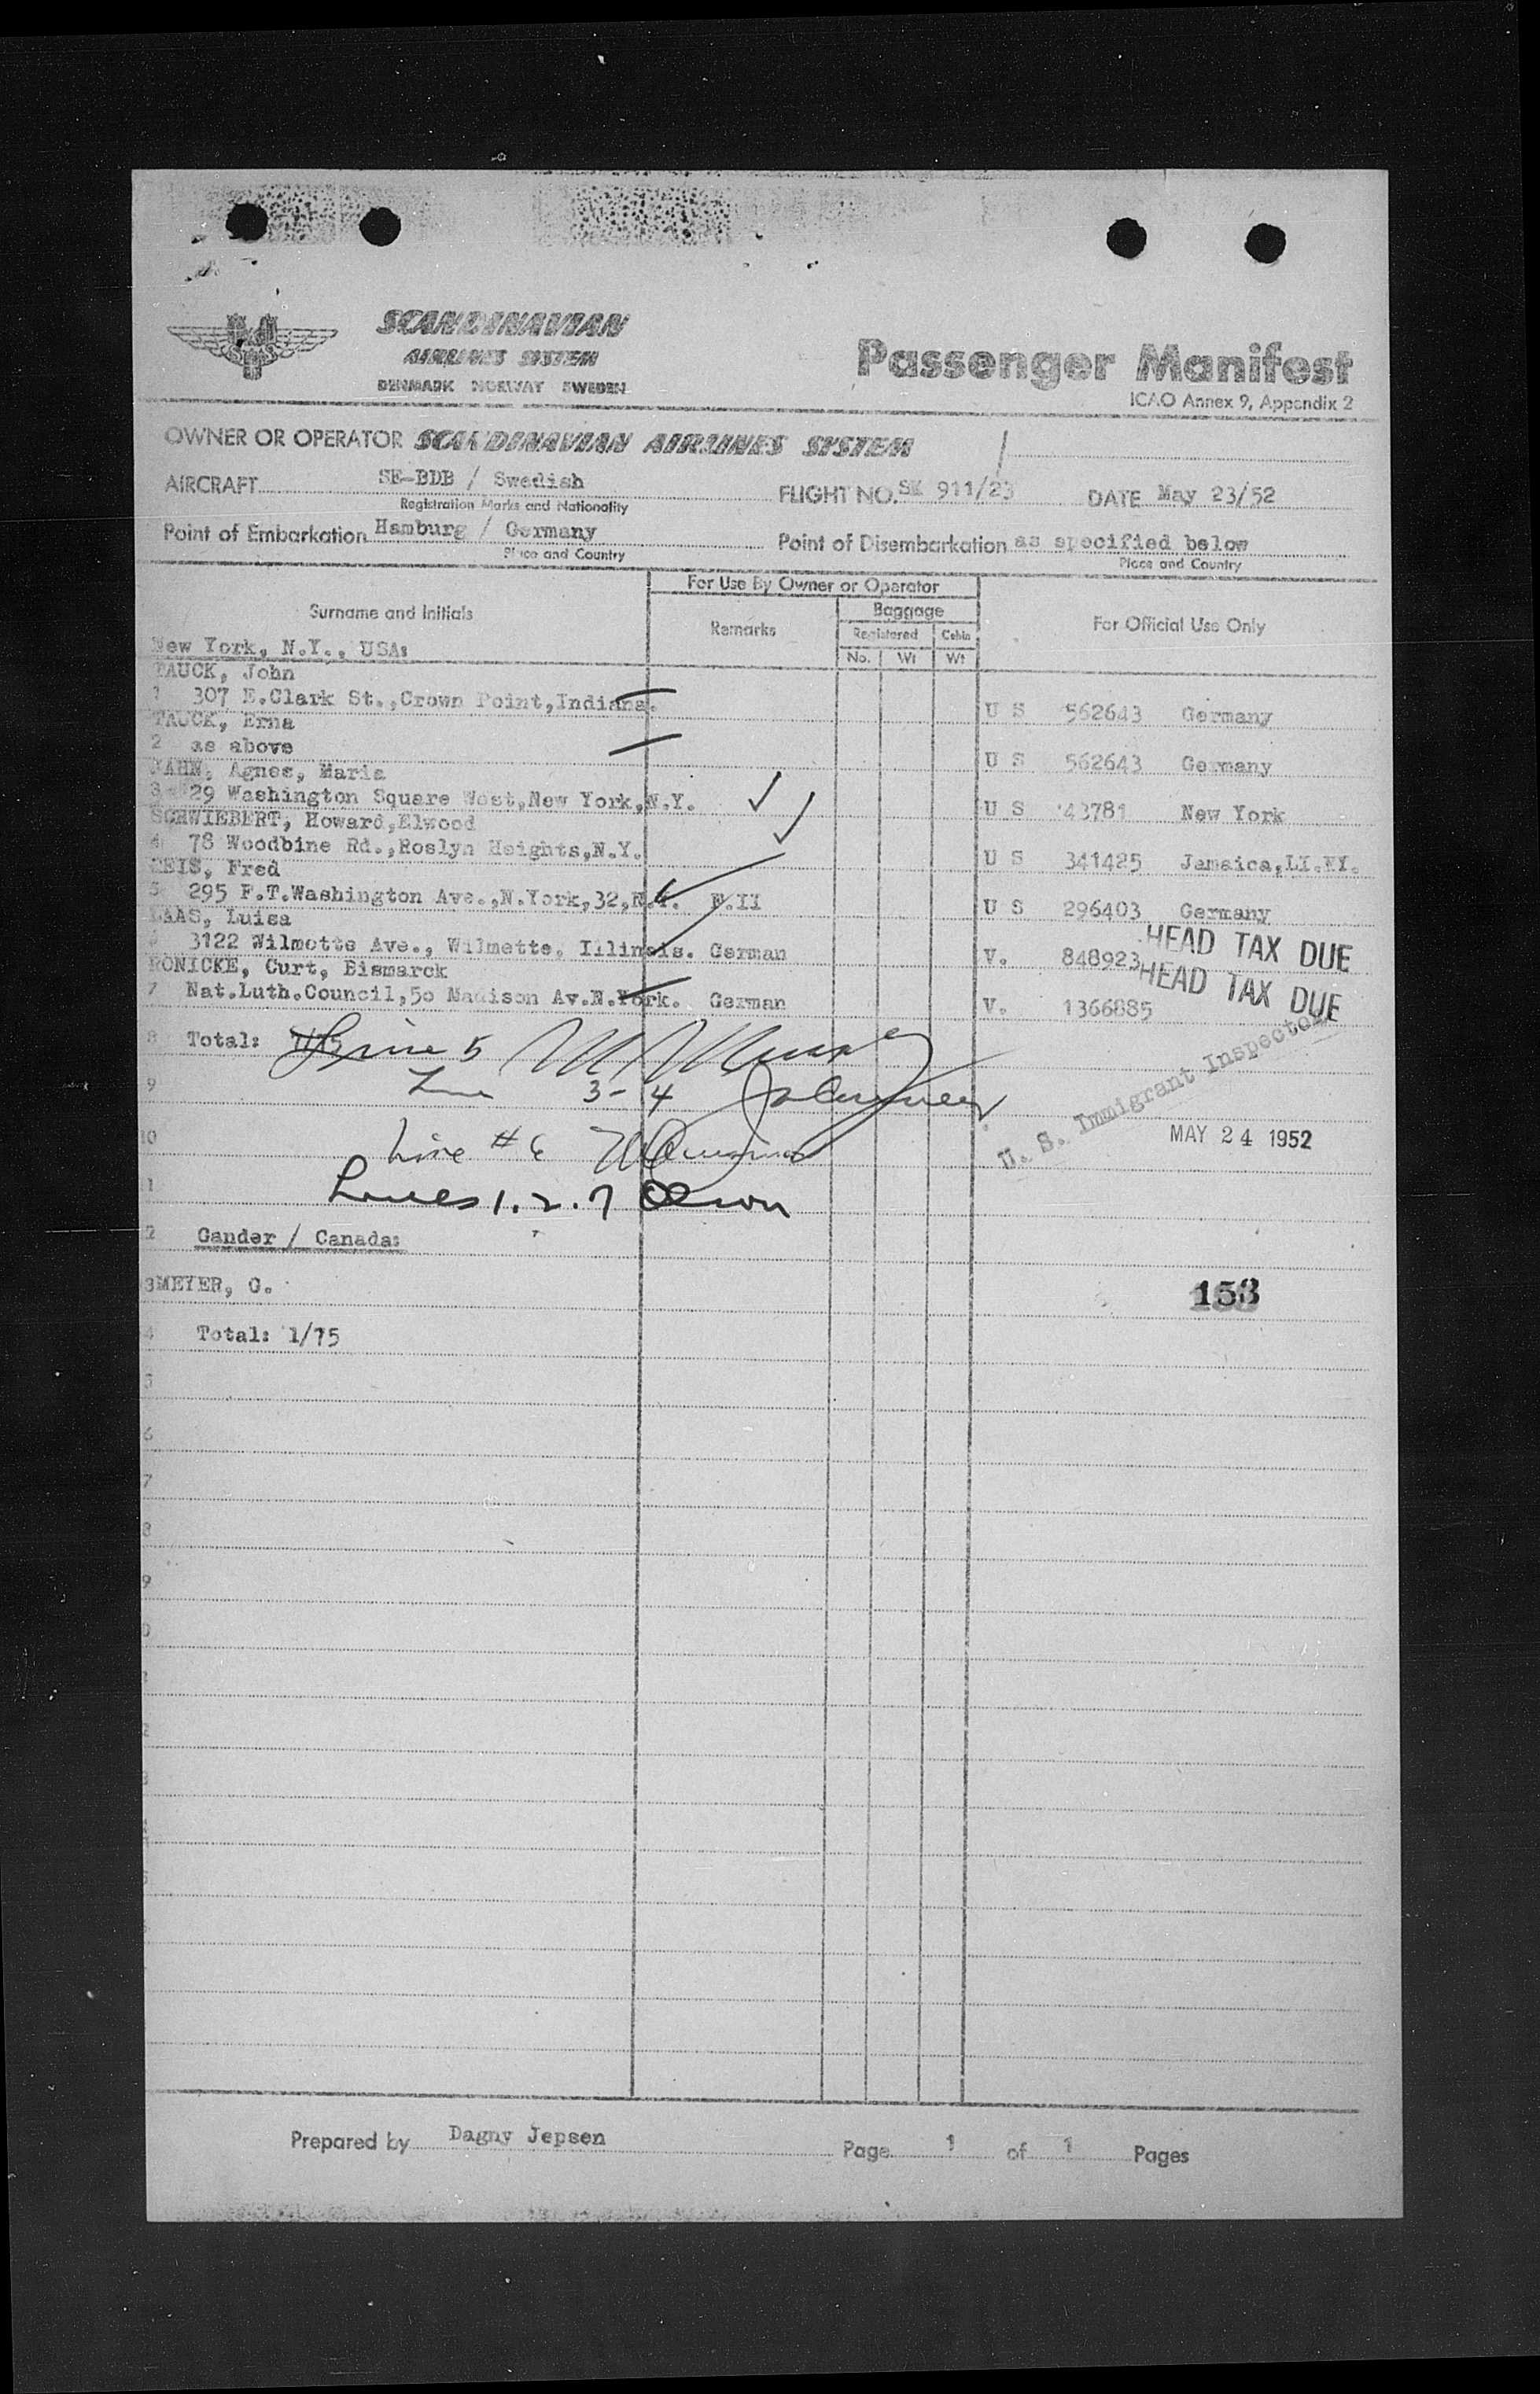 SCANDINAVIAN
AIRLINES SYSTEM
DENMARK NORWAY SWEDEN
Passenger Manifest
ICAO Annex 9, Appendix 2
OWNER OR OPERATOR SCANDINAVIAN AIRLINES SYSTEM
AIRCRAFT SE-BDB / Swedish FLIGHT NO. SK 911/23 DATE May 23/52
Registration Marks and Nationality
Point of Embarkation Hamburg / Germany Point of Disembarkation as specified below
Place and Country Place and Country
For Use By Owner or Operator
Surname and Initials Remarks Baggage For Official Use Only
Registered Cabin
No. Wt Wt
New York, N.Y., USA:
TAUCK, John
1 307 E.Clark St.,Crown Point,Indiana. U S 562643 Germany
TAUCK, Erna
2 as above U S 562643 Germany
JAHN, Agnes, Maria
3 29 Washington Square West,New York,N.Y. U S 43781 New York
SCHWIEBERT, Howard,Elwood
4 78 Woodbine Rd.,Roslyn Heights,N.Y. U S 341425 Jamaica,LI.NY.
Fred
5 295 F.T.Washington Ave.,N.York,32,N.Y. F.II U S 296403 Germany
Luisa
3122 Wilmette Ave., Wilmette, Illinois. German V. 848923 HEAD TAX DUE
RONICKE, Curt, Bismarck
7 Nat.Luth.Council,50 Madison Av.N.York. German V. 1366885 HEAD TAX DUE
8 Total: Line 5
U. S. Immigrant Inspector
9 Line 3-4
10 Line # 6 MAY 24 1952
1 Lines 1.2.7 Olson
2 Gander / Canada:
3 MEYER, G. 153
4 Total: 1/75
5
6
7
8
9
0
Prepared by Dagny Jepsen Page 1 of 1 Pages